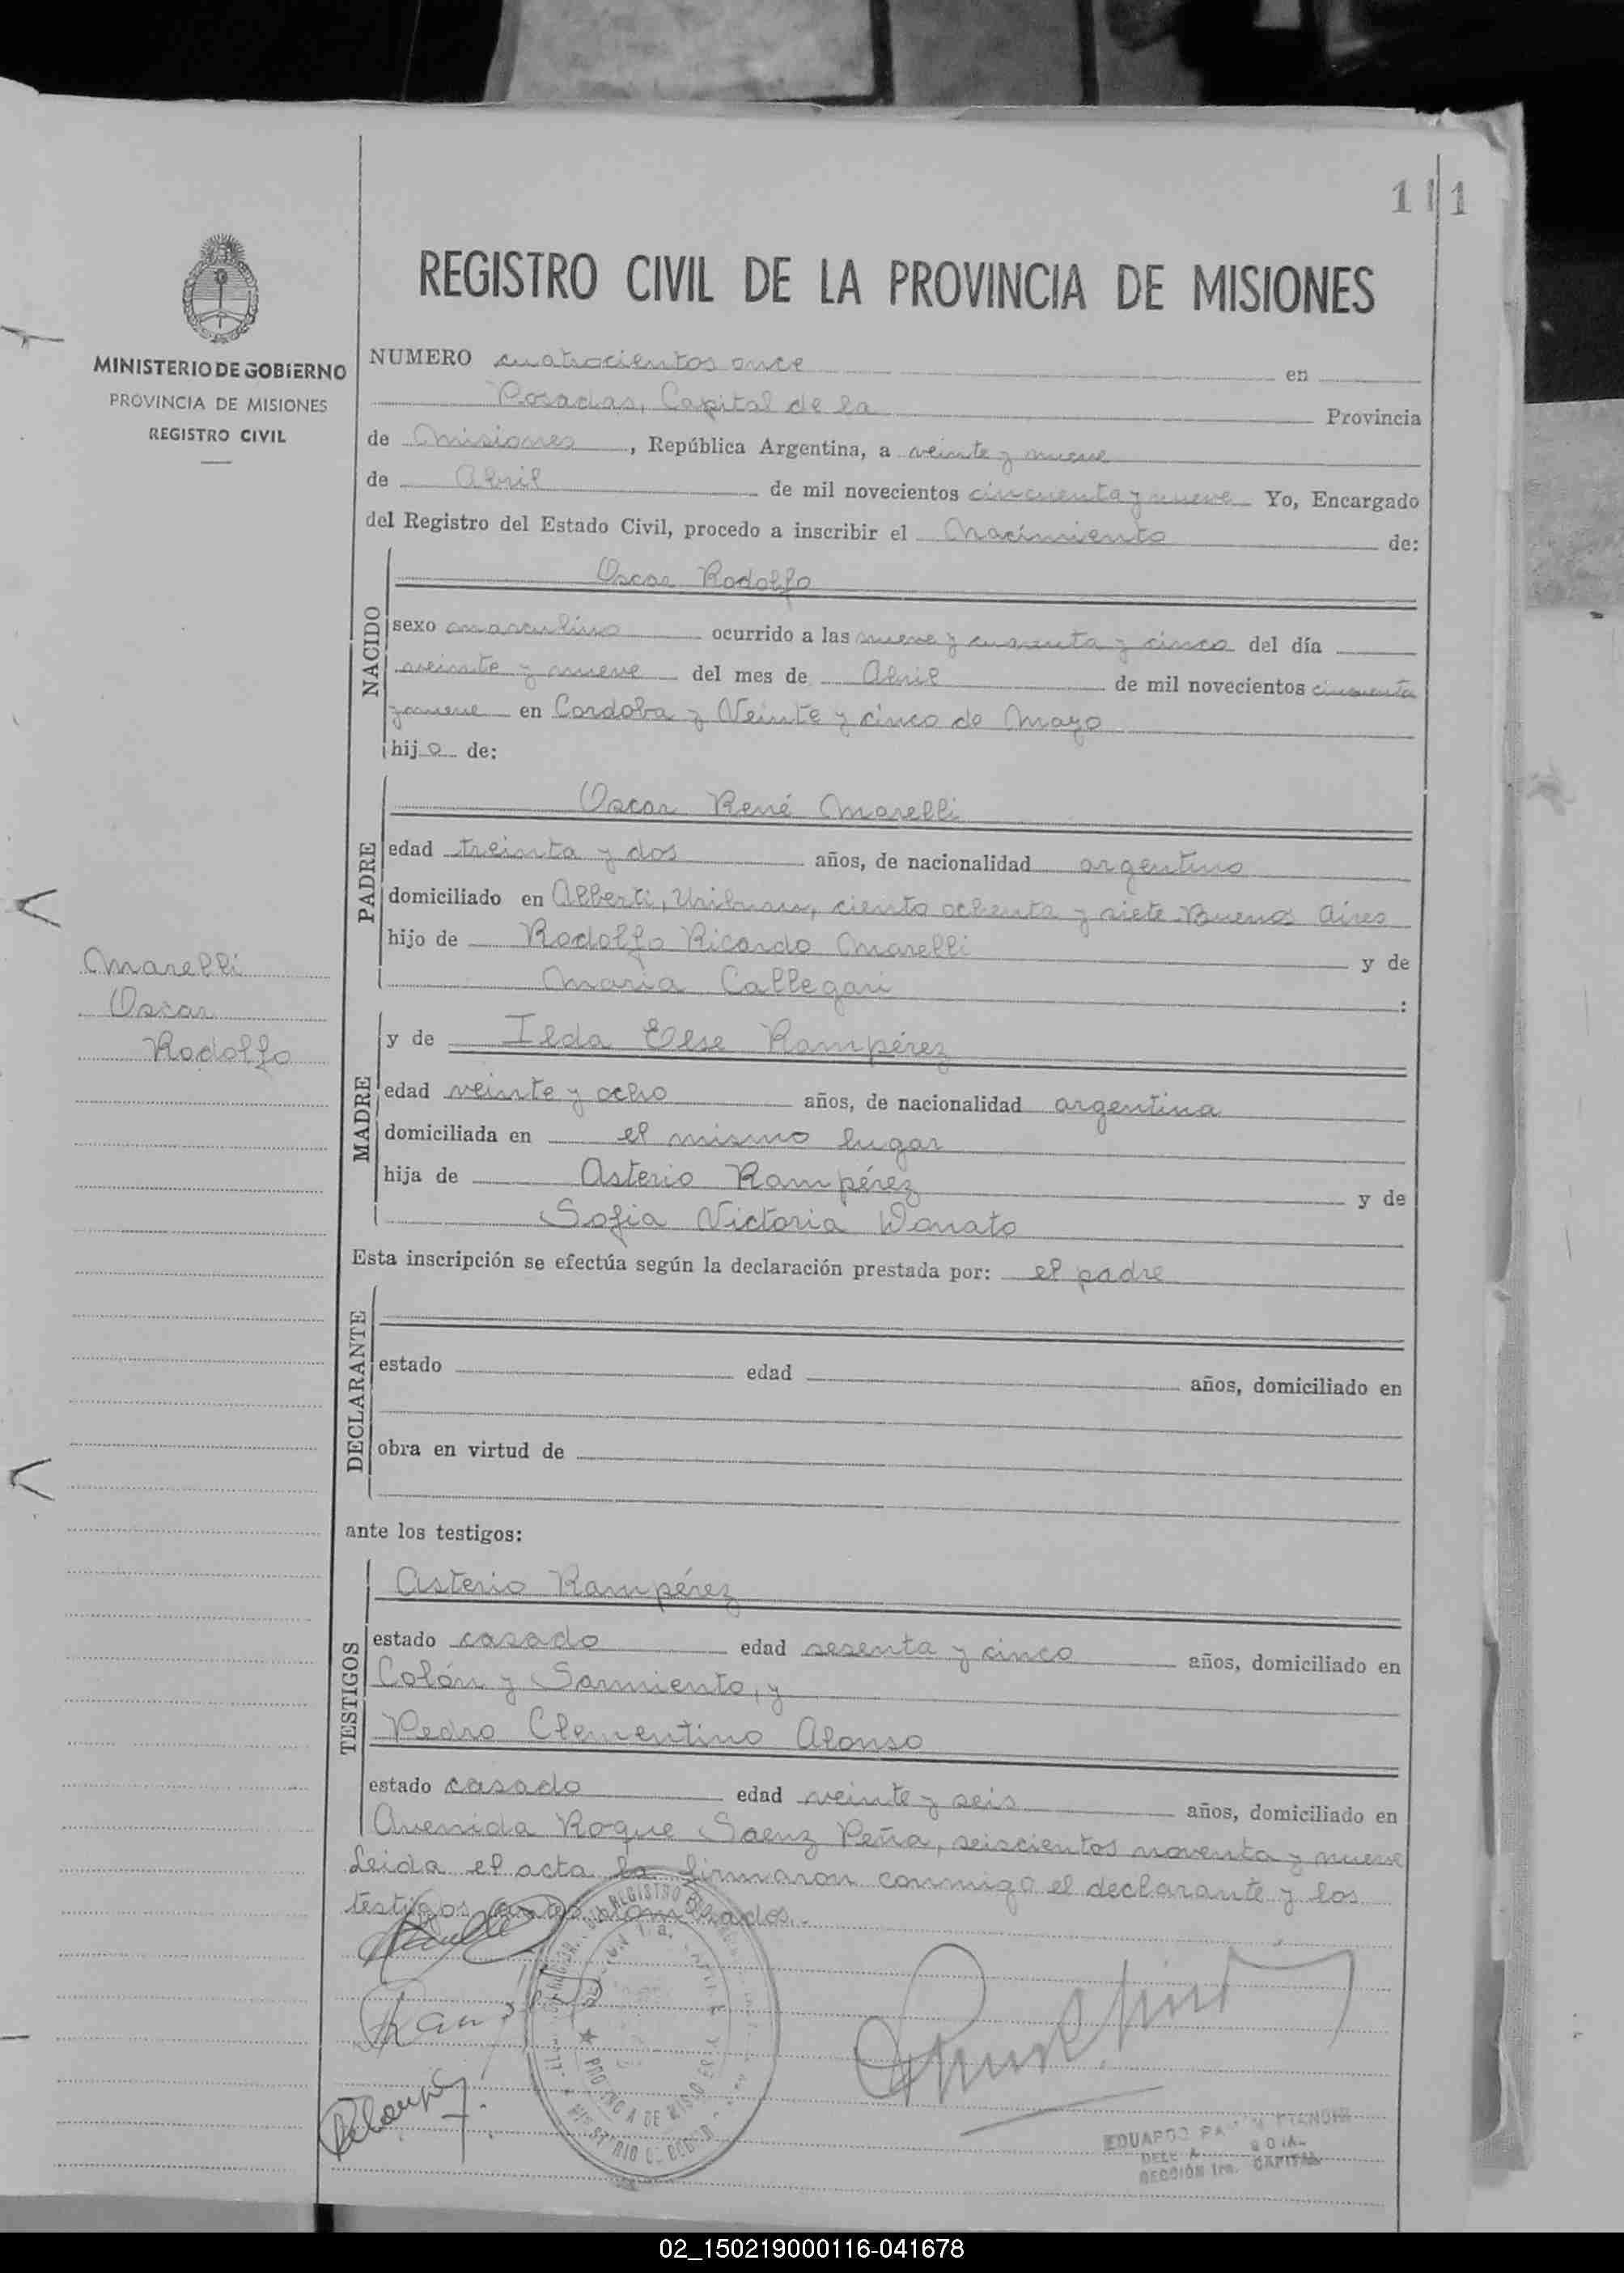 111
REGISTRO CIVIL DE LA PROVINCIA DE MISIONES
MINISTERIO DE GOBIERNO
PROVINCIA DE MISIONES
REGISTRO CIVIL
NUMERO cuatrocientos once en
Posadas, Capital de la Provincia
de Misiones, República Argentina, a veinte y nueve
de Abril de mil novecientos cincuenta y nueve Yo, Encargado
del Registro del Estado Civil, procedo a inscribir el Nacimiento de:
NACIDO
Oscar Rodolfo
sexo masculino ocurrido a las nueve y cuarenta y cinco del día
veinte y nueve del mes de Abril de mil novecientos cincuenta
y nueve en Cordoba y Veinte y cinco de Mayo
hijo de:
PADRE
Oscar René Marelli
edad treinta y dos años, de nacionalidad argentino
domiciliado en Alberti, ciento ochenta y siete Buenos Aires
hijo de Rodolfo Ricardo Marelli y de
Maria Callegari :
Marelli
Oscar
Rodolfo
MADRE
y de Ilda Else Rampérez
edad veinte y ocho años, de nacionalidad argentina
domiciliada en el mismo lugar
hija de Asterio Rampérez y de
Sofia Victoria Donato
Esta inscripción se efectúa según la declaración prestada por: el padre
DECLARANTE
estado edad años, domiciliado en
obra en virtud de
ante los testigos:
TESTIGOS
Asterio Rampérez
estado casado edad sesenta y cinco años, domiciliado en
Colón y Sarmiento, y
Pedro Clementino Alonso
estado casado edad veinte y seis años, domiciliado en
Avenida Roque Saenz Peña, seiscientos noventa y nueve
Leida el acta la firmaron conmigo el declarante y los
testigos antes nombrados.
REGISTRO
PROVINCIA DE MISIONES
EDUARDO
SECCIÓN 1ra. CAPITAL
02_150219000116-041678